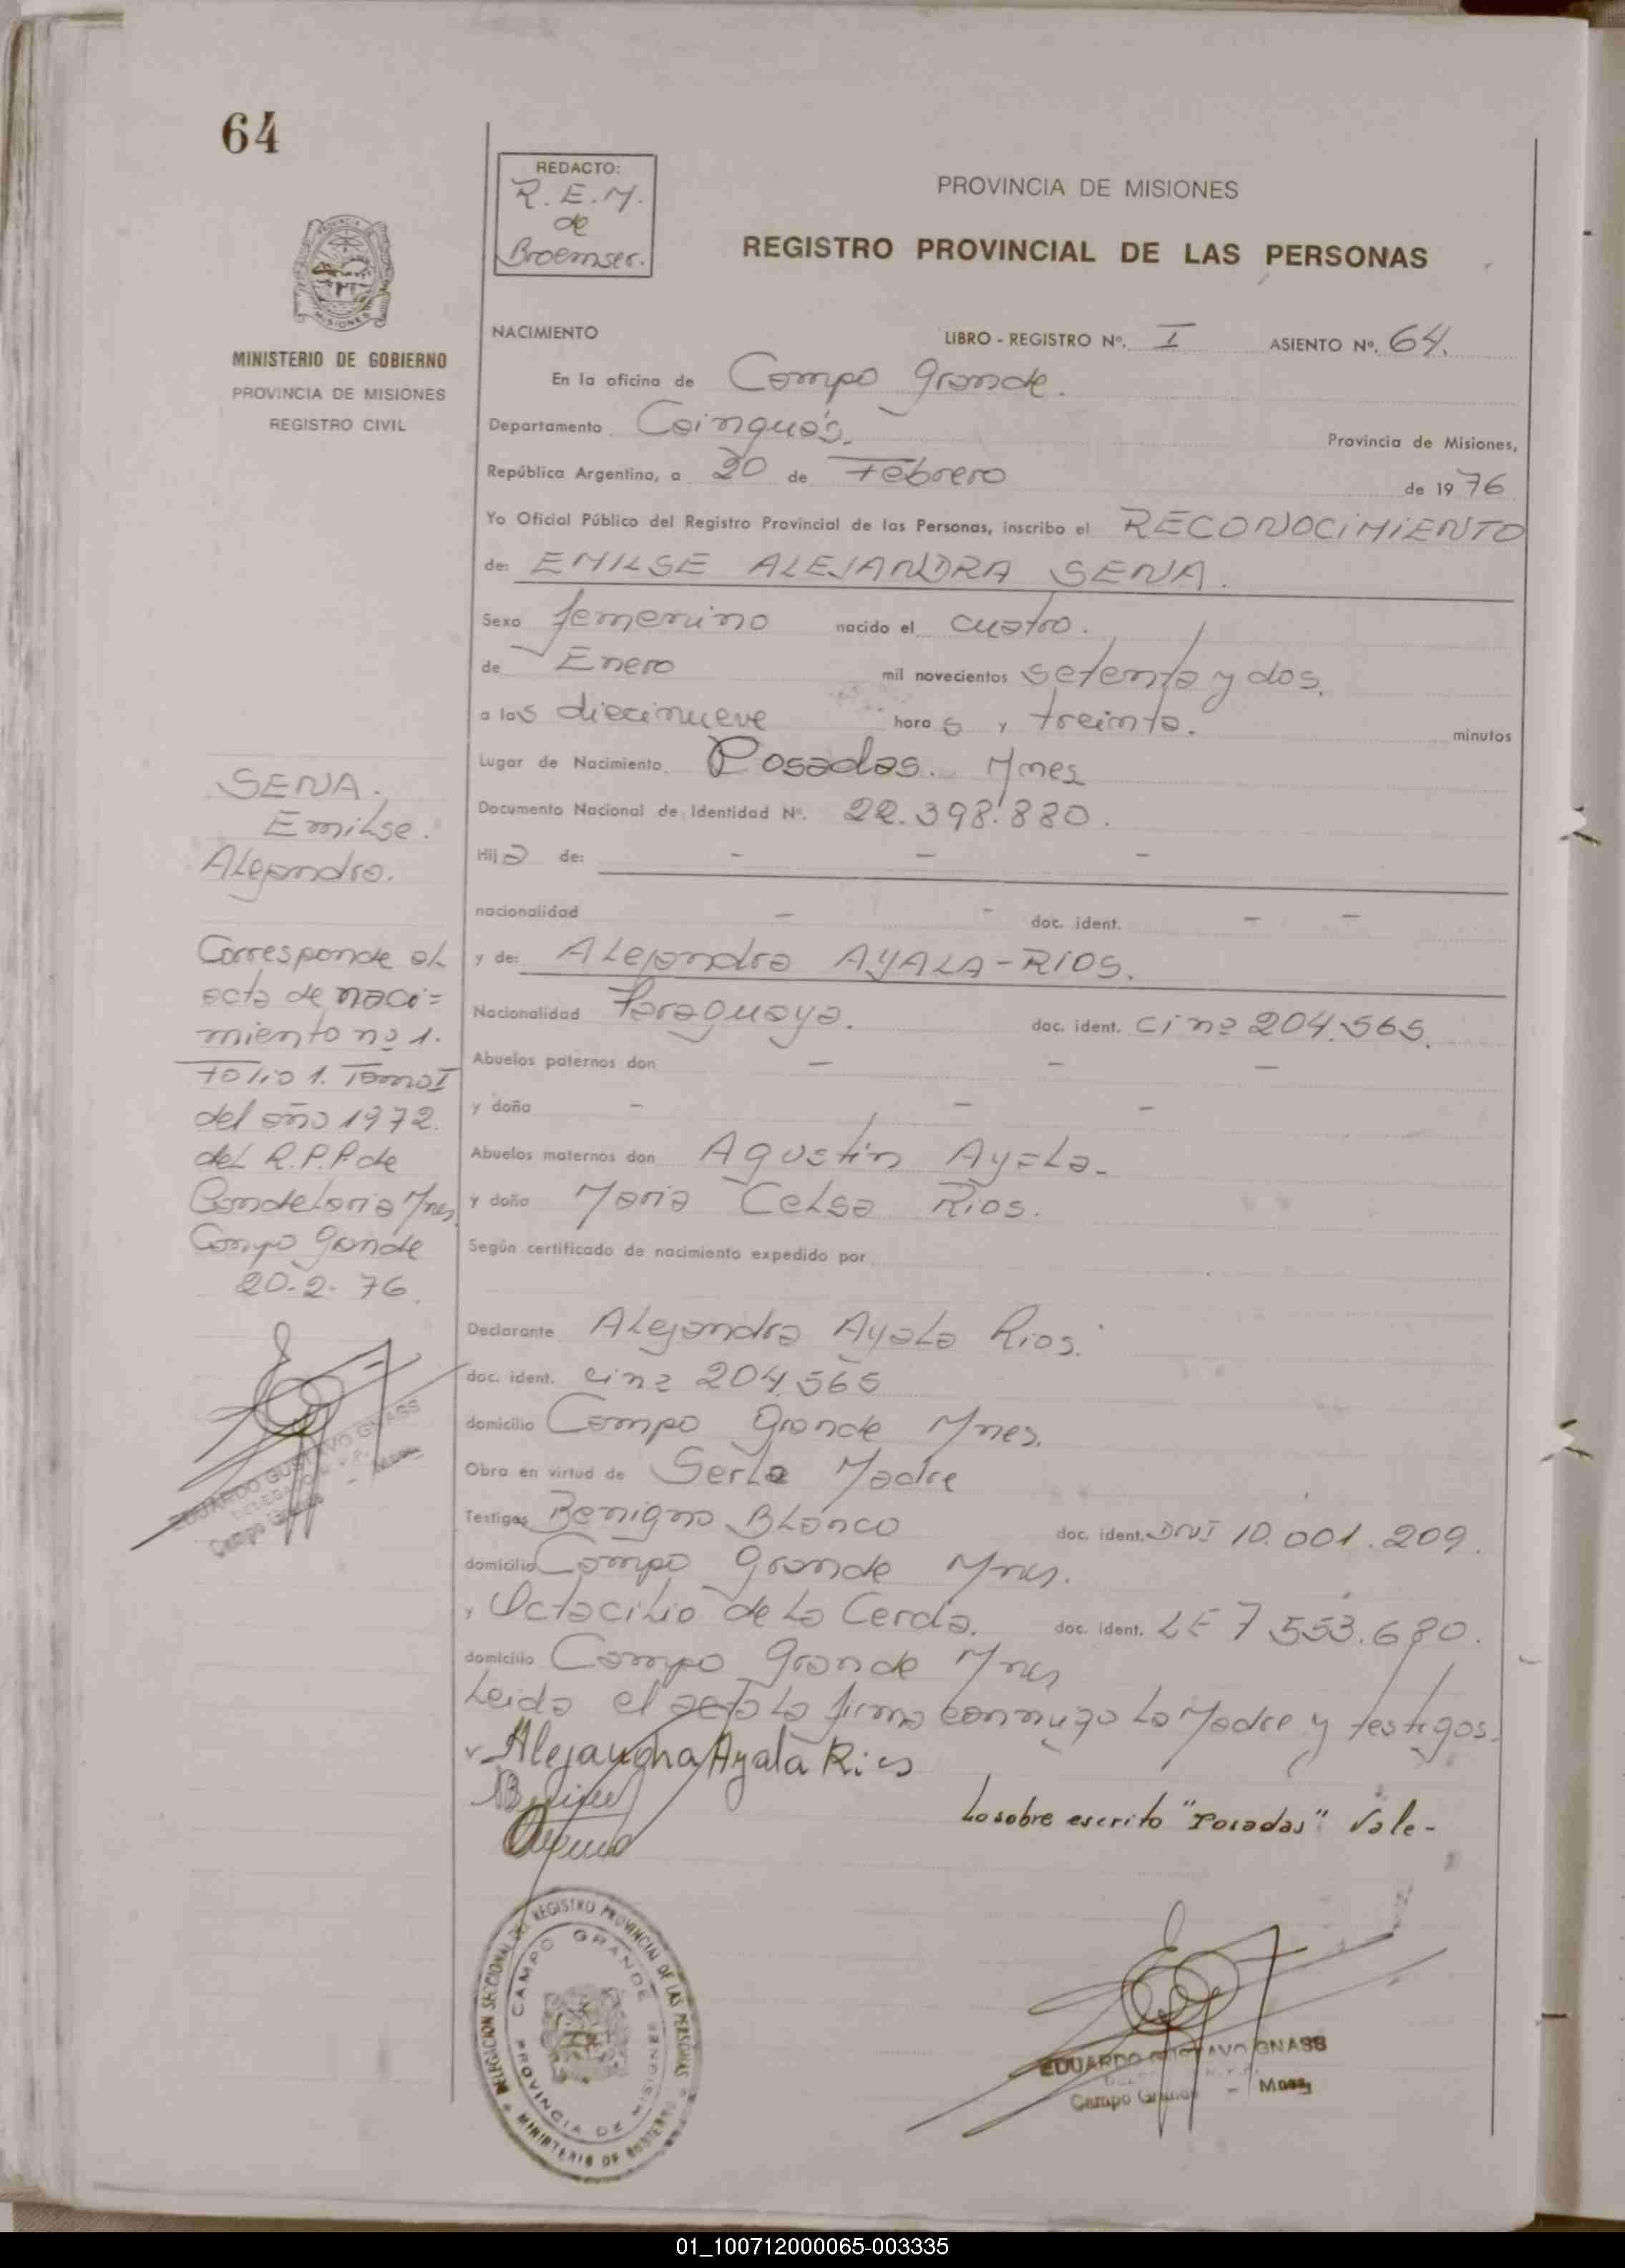 64
REDACTO:
R. E. M.
de
Broemser.
PROVINCIA DE MISIONES
REGISTRO PROVINCIAL DE LAS PERSONAS
PROVINCIA DE
MISIONES
MINISTERIO DE GOBIERNO
PROVINCIA DE MISIONES
REGISTRO CIVIL
NACIMIENTO LIBRO - REGISTRO Nº. I ASIENTO Nº. 64.
En la oficina de Campo Grande.
Departamento Cainguás. Provincia de Misiones,
República Argentina, a 20 de Febrero de 1976
Yo Oficial Público del Registro Provincial de las Personas, inscribo el RECONOCIMIENTO
de: EMILSE ALEJANDRA SENA.
Sexo femenino nacido el cuatro.
de Enero mil novecientos setenta y dos.
a las diecinueve horas y treinta. minutos
Lugar de Nacimiento Posadas. Mnes
Documento Nacional de Identidad Nº. 22.398.880.
Hija de: - - -
nacionalidad - - doc. ident. - -
y de: Alejandra AYALA-RIOS.
Nacionalidad Paraguaya. doc. ident. ci nº 204.565.
Abuelos paternos don - - -
y doña - - -
Abuelos maternos don Agustin Ayala-
y doña Maria Celsa Rios.
Según certificado de nacimiento expedido por
Declarante Alejandra Ayala Rios.
doc. ident. ci nº 204.565
domicilio Campo Grande Mnes.
Obra en virtud de Ser la Madre
Testigos Benigno Blanco doc. ident. DNI 10.001.209.
domicilio Campo Grande Mnes.
y Octacilio de la Cerda. doc. ident. LE 7.553.680.
domicilio Campo Grande Mnes
Leida el acta la firma conmigo la Madre y testigos.
Alejandra Ayala Rios
Lo sobre escrito "Posadas" Vale-
SENA.
Emilse.
Alejandra.
Corresponde al
acta de naci=
miento nº 1.
Folio 1. Tomo I
del año 1972.
del R.P.P de
Candelaria Mnes
Campo Grande
20-2-76.
EDUARDO GUSTAVO GNASS
Campo Grande - Mnes.
DELEGACION SECCIONAL DEL REGISTRO PROVINCIAL DE LAS PERSONAS
MINISTERIO DE GOBIERNO
CAMPO GRANDE
PROVINCIA DE MISIONES
EDUARDO GUSTAVO GNASS
Campo Grande - Mnes.
01_100712000065-003335